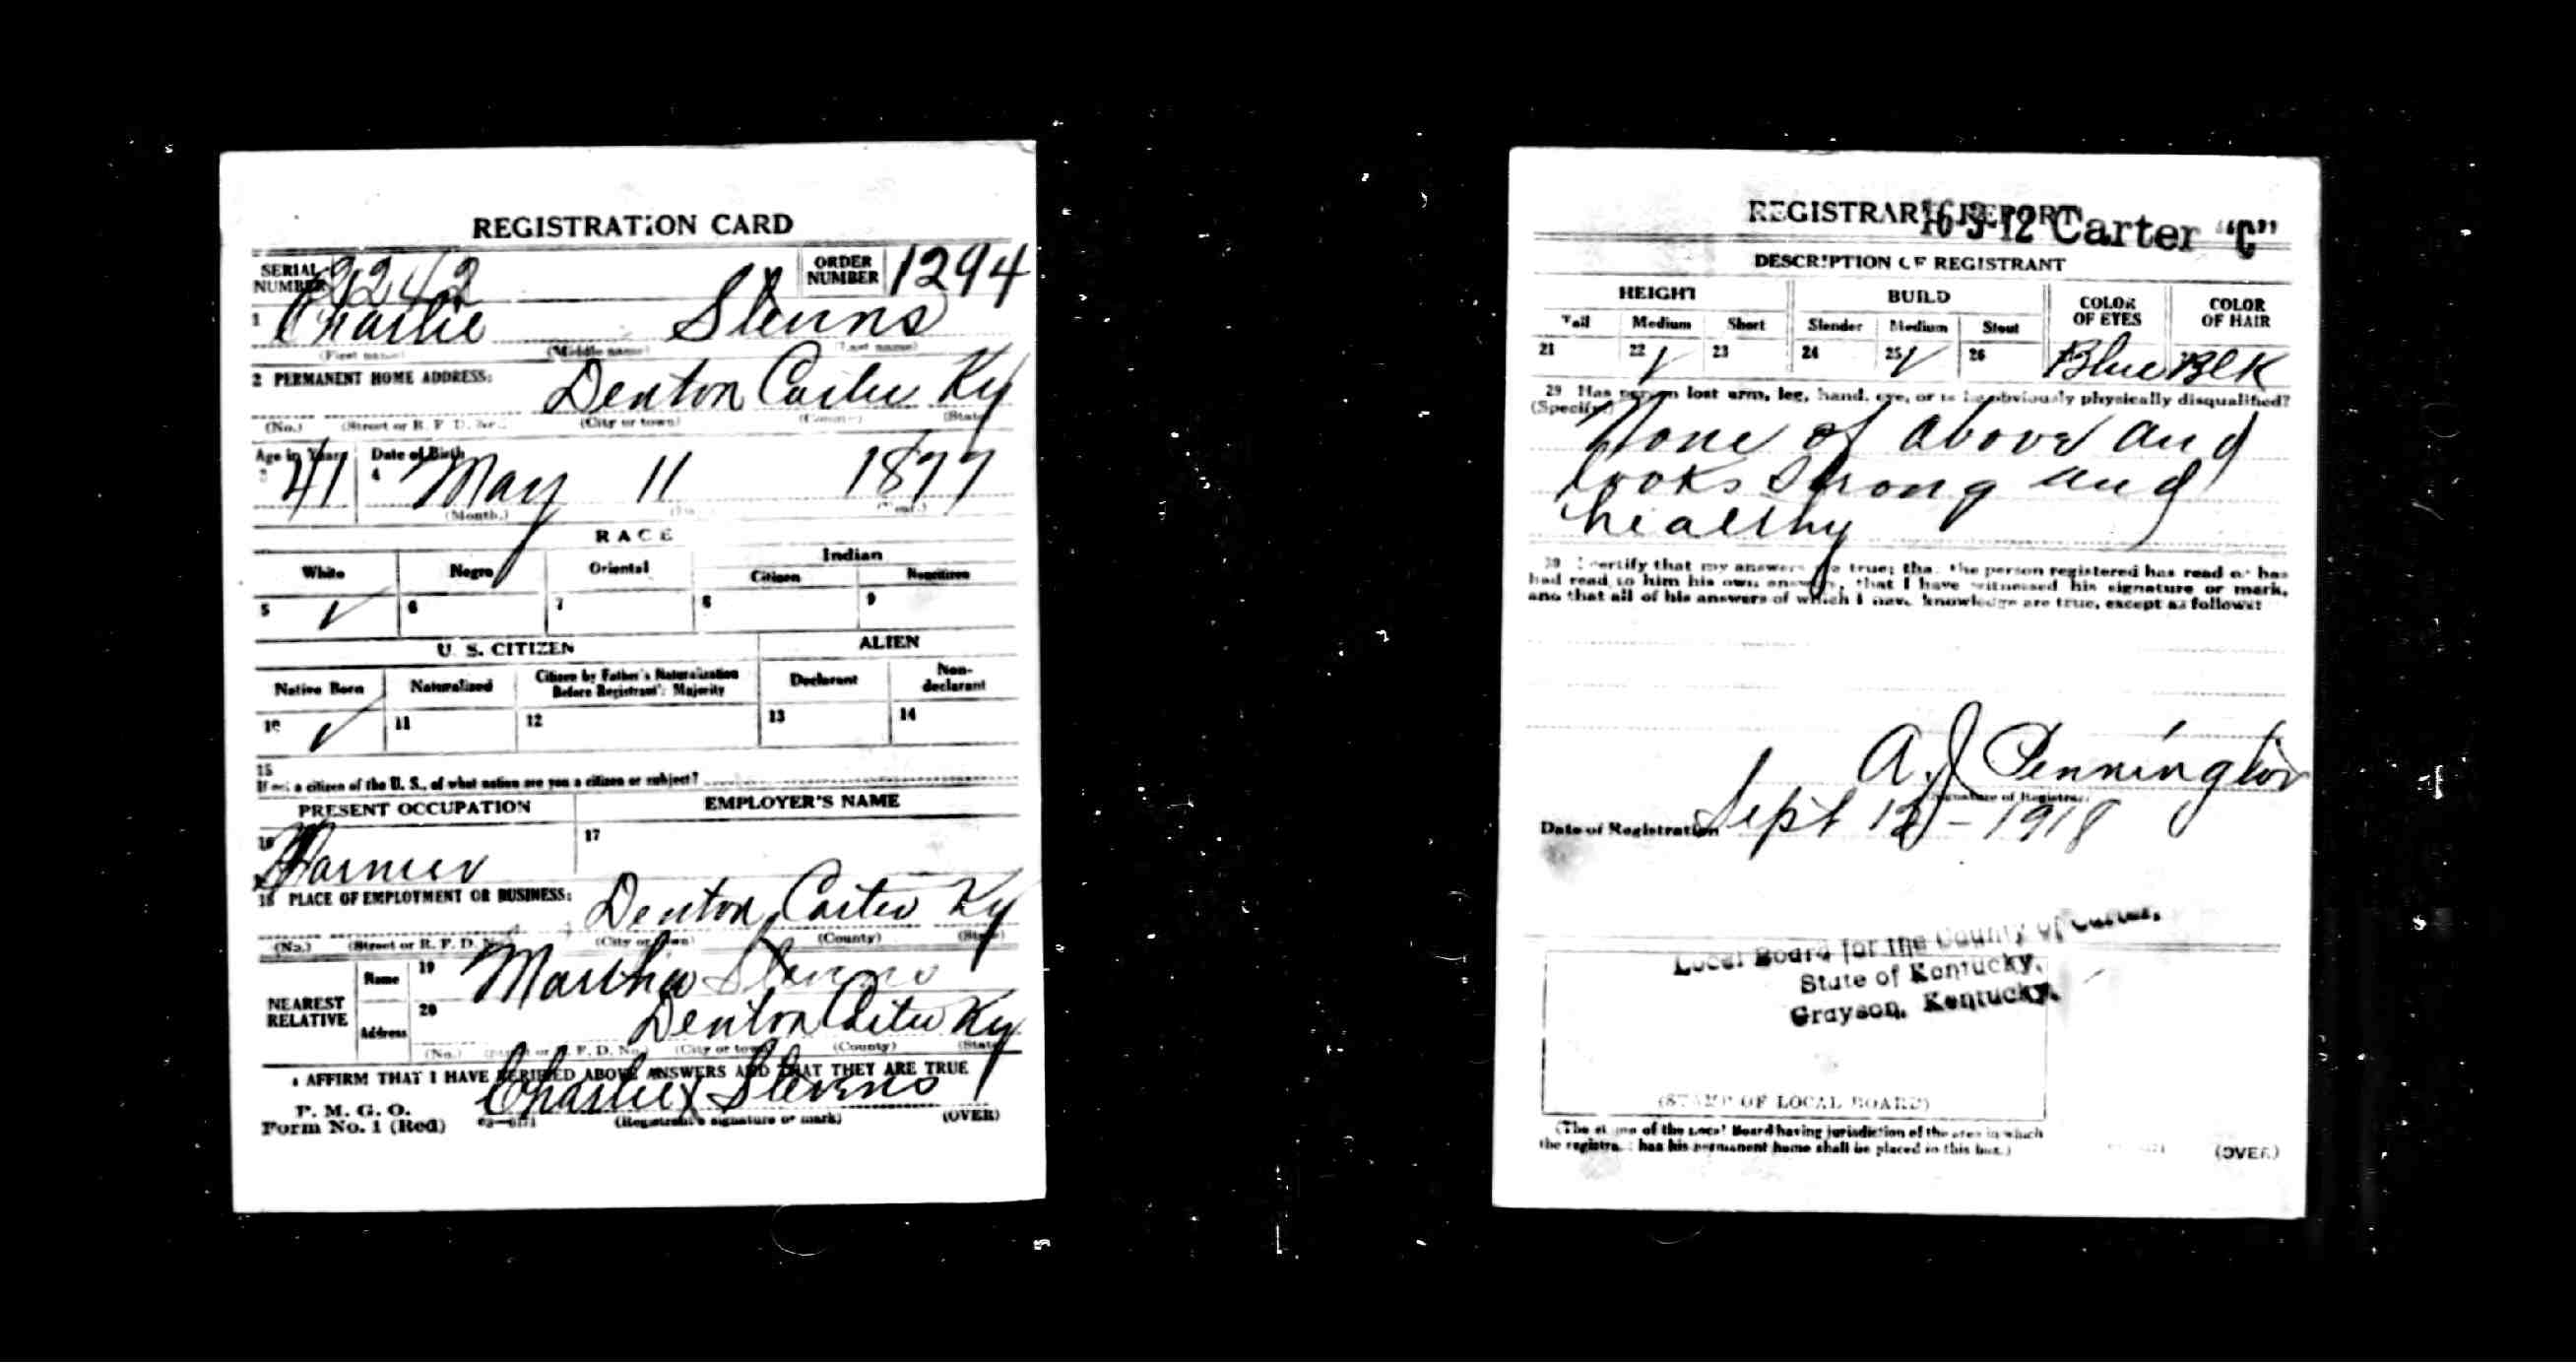 REGISTRATION CARD
SERIAL NUMBER 2242 ORDER NUMBER 1294
1 Charlie Stevns
(First name) (Middle name) (Last name)
2 PERMANENT HOME ADDRESS:
Denton Carter Ky
(No.) (Street or R. F. D. No.) (City or town) (County) (State)
Age in Years Date of Birth
3 41 4 May 11 1877
(Month.) (Day.) (Year.)
RACE
White Negro Oriental Indian
Citizen Noncitizen
5 ✓ 6 7 8 9
U. S. CITIZEN ALIEN
Native Born Naturalized Citizen by Father's Naturalization Before Registrant's Majority Declarant Non-declarant
10 ✓ 11 12 13 14
15
If not a citizen of the U. S., of what nation are you a citizen or subject?
PRESENT OCCUPATION EMPLOYER'S NAME
16 Farmer 17
18 PLACE OF EMPLOYMENT OR BUSINESS:
Denton, Carter Ky
(No.) (Street or R. F. D. No.) (City or town) (County) (State)
NEAREST RELATIVE
Name 19 Martha Stevns
Address 20 Denton Carter Ky
(No.) (Street or R. F. D. No.) (City or town) (County) (State)
I AFFIRM THAT I HAVE VERIFIED ABOVE ANSWERS AND THAT THEY ARE TRUE
P. M. G. O.
Form No. 1 (Red) 03—6171 Charlie X Stevns
(Registrant's signature or mark) (OVER)
REGISTRAR'S REPORT 16-3-12 Carter "C"
DESCRIPTION OF REGISTRANT
HEIGHT BUILD COLOR OF EYES COLOR OF HAIR
Tall Medium Short Slender Medium Stout
21 22 ✓ 23 24 25 ✓ 26 Blue Blk
29 Has person lost arm, leg, hand, eye, or is he obviously physically disqualified?
(Specify.)
None of above and
looks strong and
healthy
30 I certify that my answers are true; that the person registered has read or has
had read to him his own answers, that I have witnessed his signature or mark,
and that all of his answers of which I have knowledge are true, except as follows:
A. J Pennington
(Signature of Registrar)
Date of Registration Sept 12 - 1918
Local Board for the County of Carter,
State of Kentucky,
Grayson, Kentucky.
(STAMP OF LOCAL BOARD)
(The stamp of the Local Board having jurisdiction of the area in which
the registrant has his permanent home shall be placed in this box.)
(OVER)